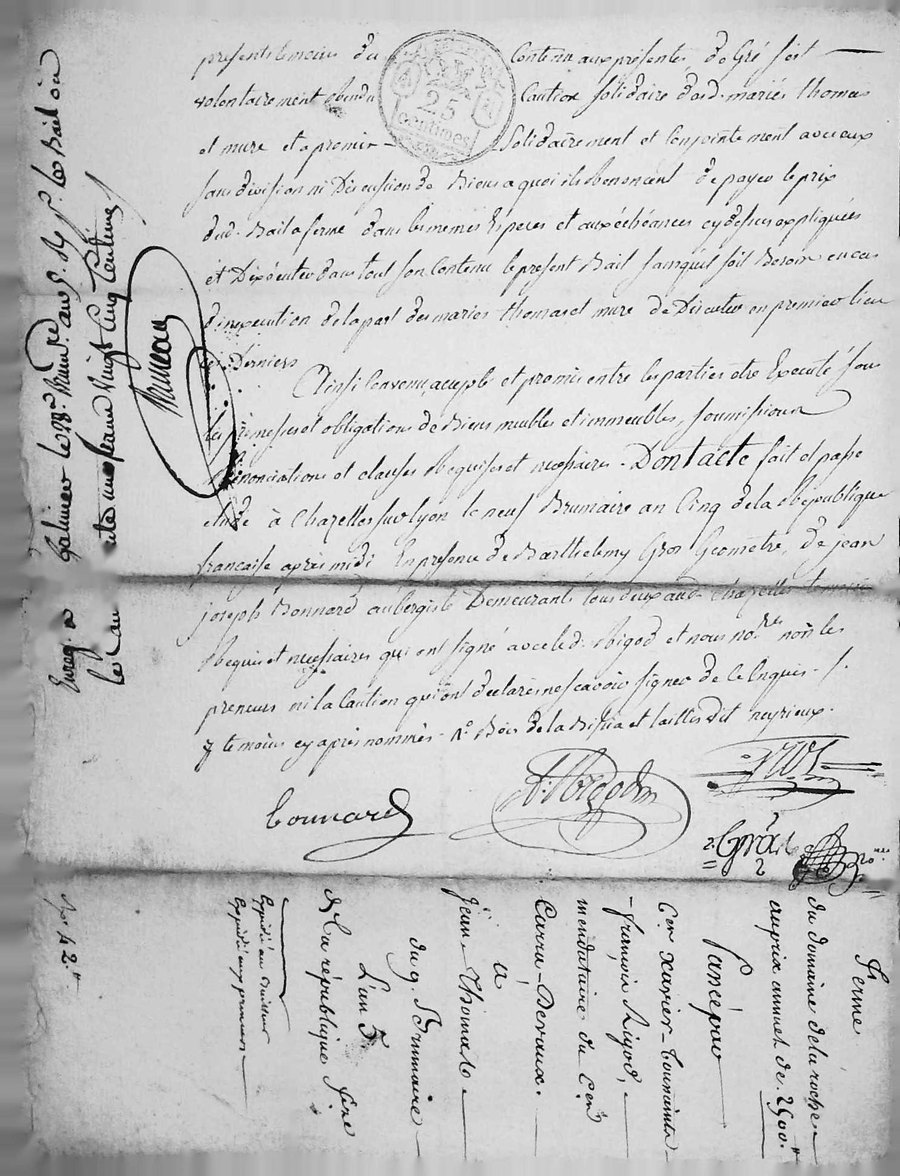 présents lecture du Contenu aux présentes, de Gré soit
volontairement rendu Caution solidaire desd. mariés thomas
et mure et a promis solidairement et Conjointement avec eux
sans division ni Discussion de Biens a quoi ils Renoncent De payer le prix
dud. Bail a ferme dans les mêmes Espèces et aux échéances cy dessus expliquées
et D'éxécuter dans tout son Contenu le présent Bail sans qu'il soit Besoin en cas
d'inexecution de la part des mariés thomas et mure de Discuter en premier lieu
ces Derniers
Ainsi Convenu, accepté et promis entre les parties être Exécuté sous
les promesses et obligations de Biens meubles et immeubles, soumissions
Renonciations et clauses Requises et necessaires. Dont acte fait et passé
à Chazelles sur lyon le neuf Brumaire an Cinq de la République
francaise après midi En présence de Barthelemy Gros Géomètre, de jean
joseph Bonnard aubergiste Demeurants tous deux aud. Chazelles temoins
Requis et necessaires qui ont signé avec led. Rigod et nous not.re non les
preneurs ni la Caution qui ont declaré ne scavoir signer de ce Enquis.
temoins cy après nommés. Bois de la et tailles dit neyrieux.
bonnard
Gros
Enreg. a Galmier le Brum.re an 5. le Bail
vingt Cinq Centimes
ferme
du domaine de la roche
au prix annuel de 2900.tt
Passé par
C.en xavier-tounaint
-françois Rigod,
mendataire du C.en
Carra-Devaux.
a
jean-Thomas.
du 9. Brumaire
L'an 5.
de la république f.ère
Expédié au Bailleur
Expédié aux preneurs
25
centimes